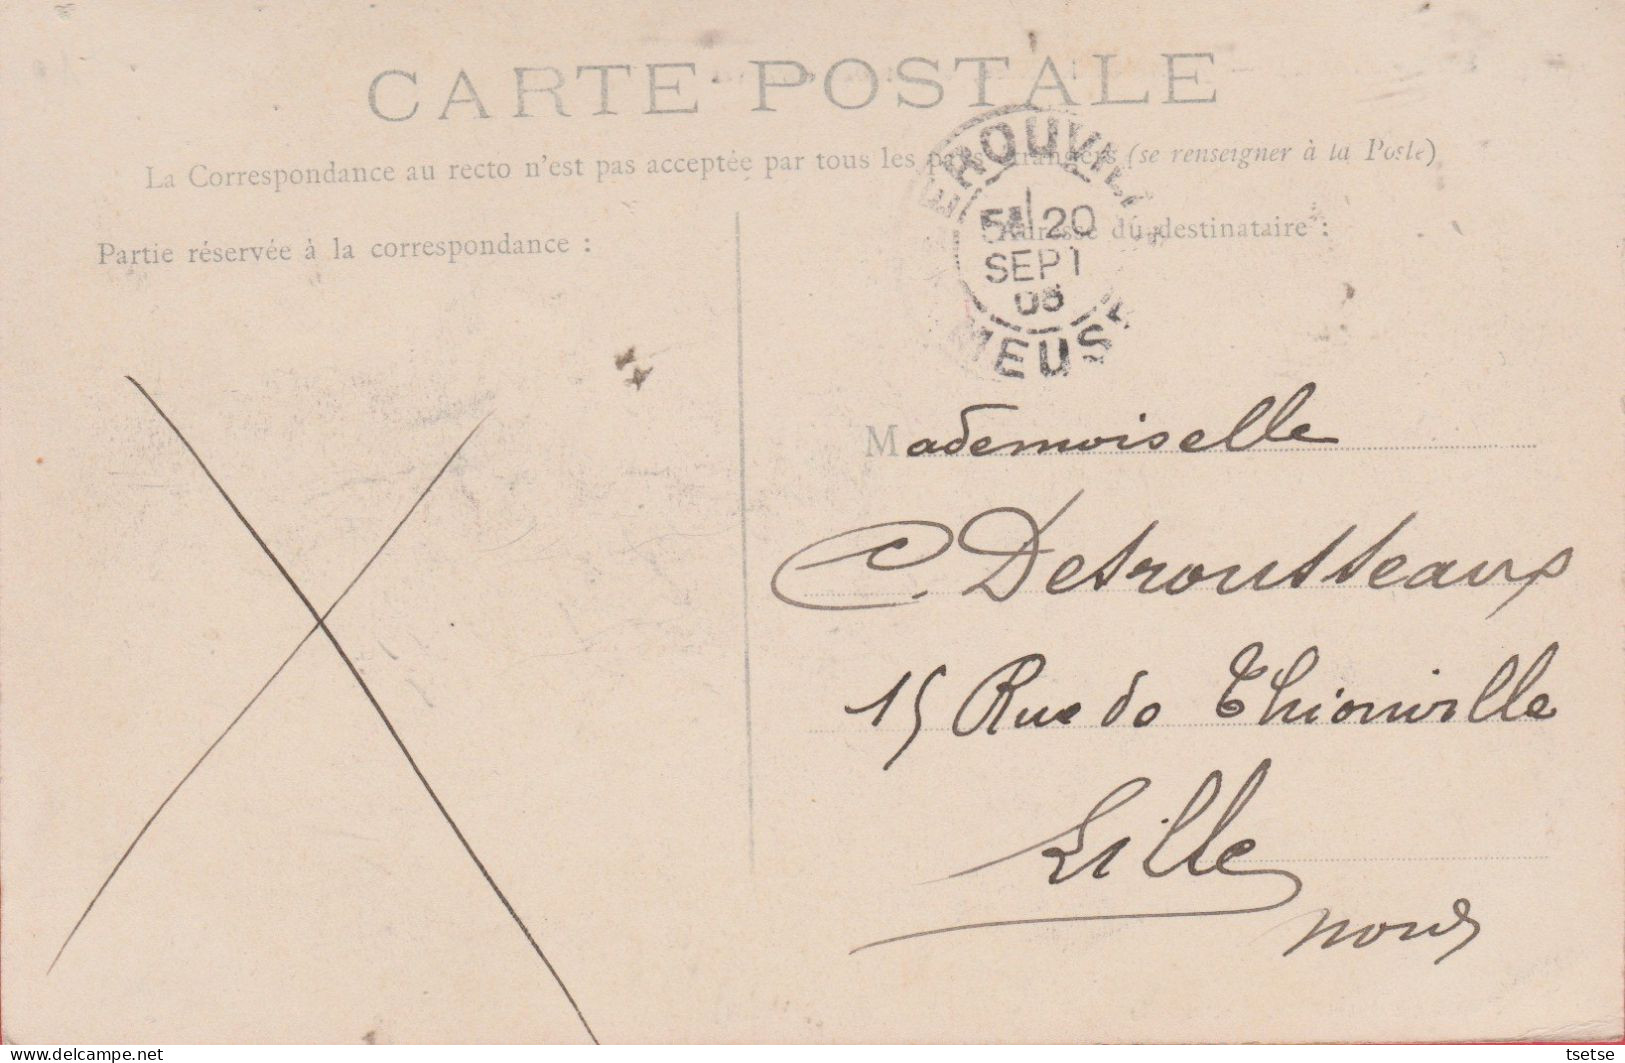 CARTE POSTALE
La Correspondance au recto n'est pas acceptée par tous les pays étrangers (se renseigner à la Poste)
Partie réservée à la correspondance :
Adresse du destinataire :
EROUVIL
20
SEPT
MEUSE
Mademoiselle
C. Detrousseaux
15 Rue de Thionville
Lille
Nord
delcampe.net
tsetse